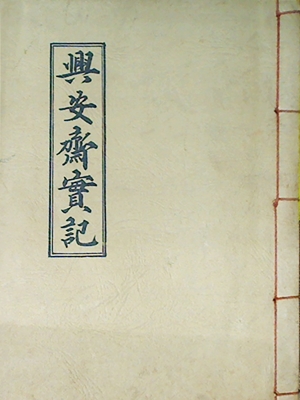 興安齋實記